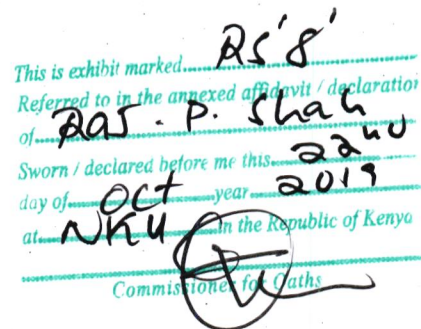 This is exhibit marked RS '8'
Referred to in the annexed affidavit / declaration
of Raj. P. Shah
Sworn / declared before me this 22nd
day of Oct year 2019
at NKU in the Republic of Kenya
Commissioner for Oaths